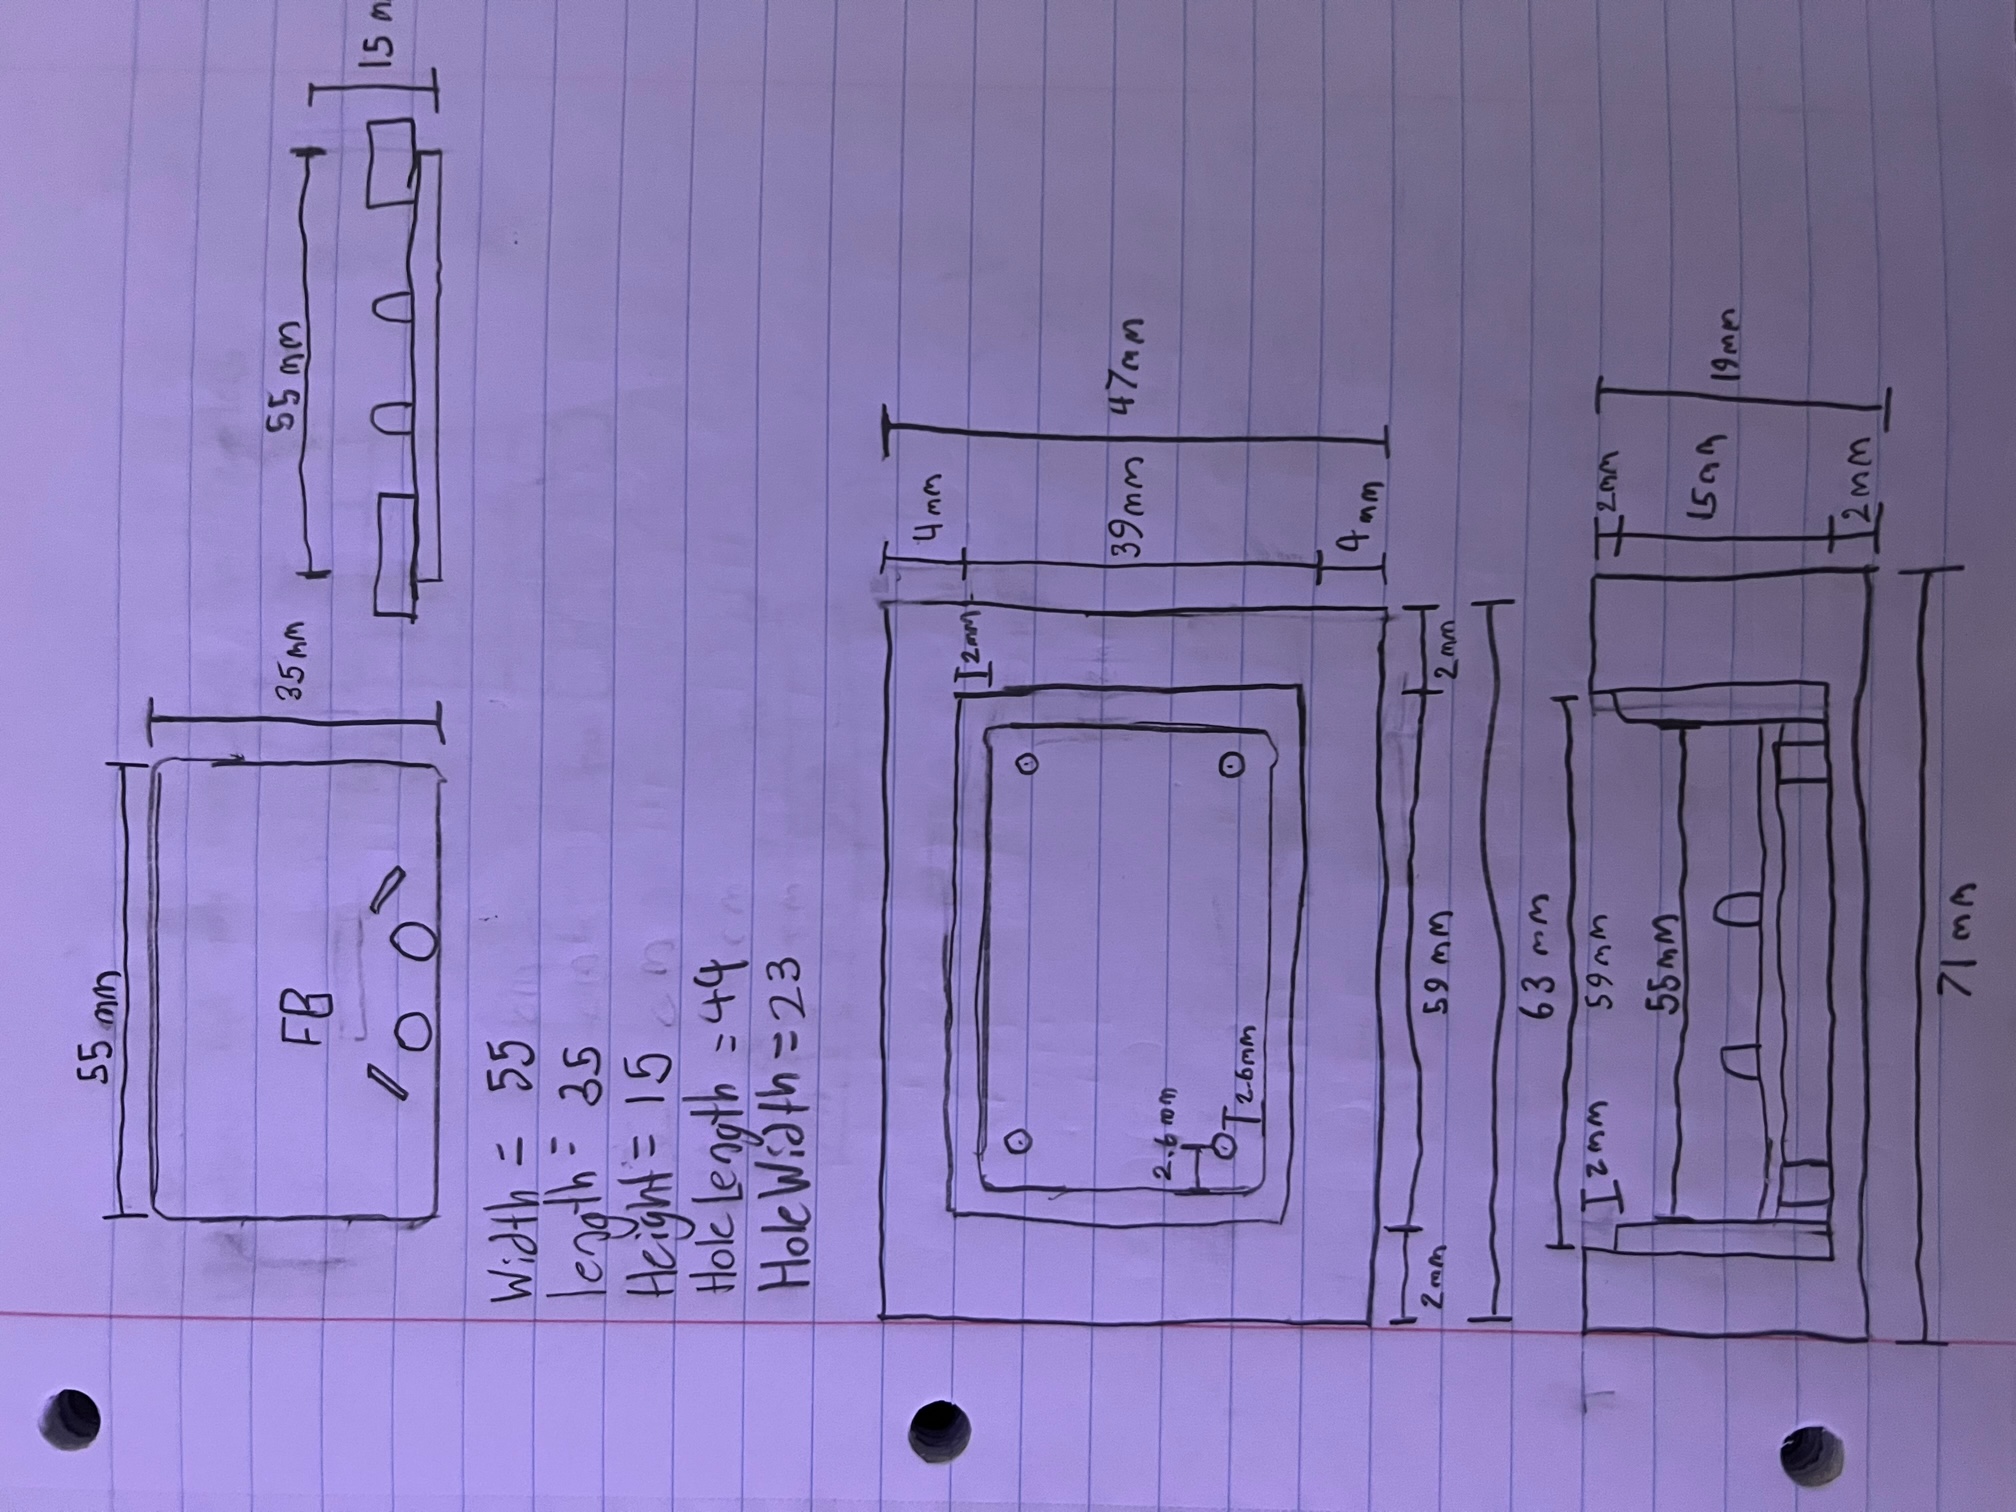 55 mm
35mm
FB
55 mm
15 m
Width = 55
length = 35
Height = 15
Hole Length = 44
Hole Width = 23
4mm
2mm
39mm
47mm
2.6mm
2.6mm
4mm
2mm
59mm
2mm
63 mm
2mm
59mm
2mm
55mm
15mm
19mm
2mm
71mm